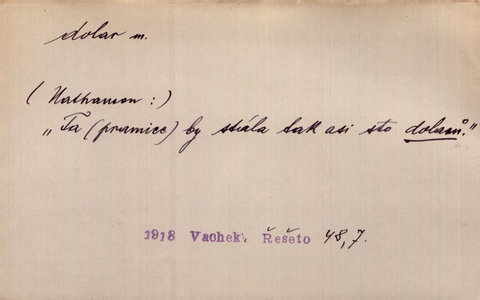 dolar m.
(Nathanson:)
„Ta (pramice) by stála tak asi sto dolarů."
1918 Vachek, Řešeto 48,7.